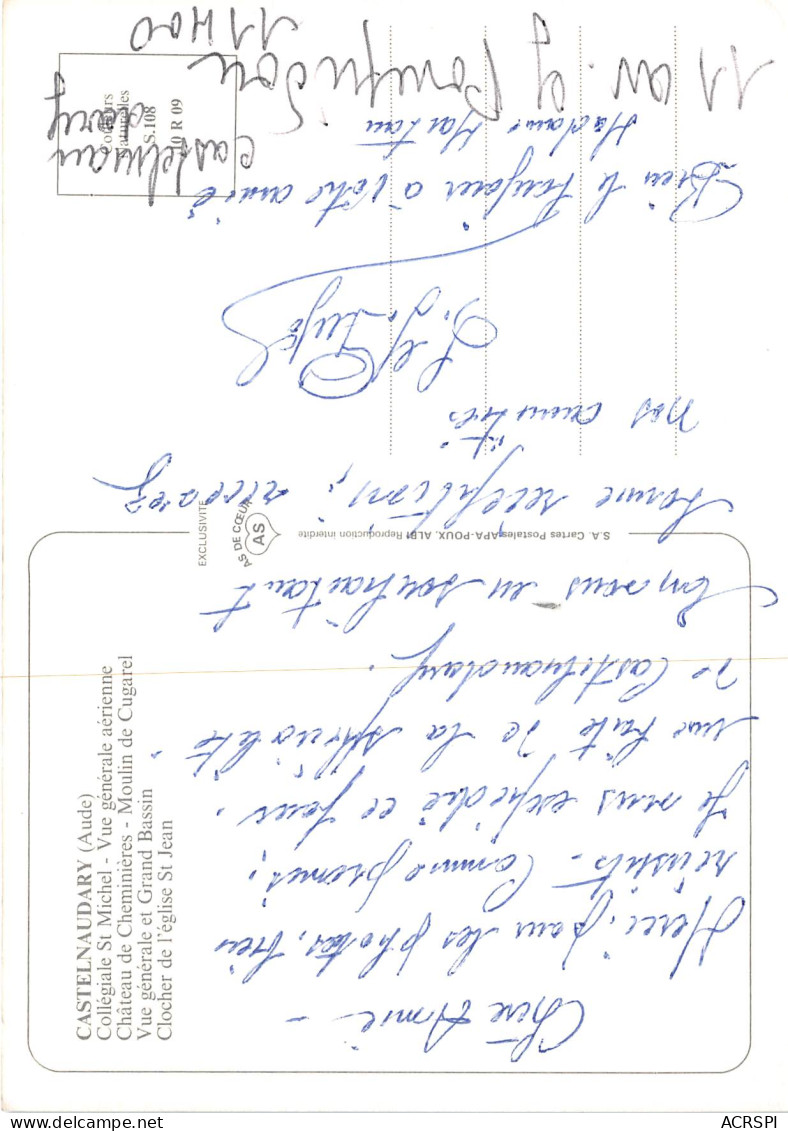 CASTELNAUDARY (Aude)
Collégiale St Michel - Vue générale aérienne
Château de Cheminières - Moulin de Cugarel
Vue générale et Grand Bassin
Clocher de l'église St Jean
Chère Amie -
Merci, pour les photos, bien
réussits. Comme promis,
Je vous expédie ce jour.
une boîte de la spécialité
de Castelnaudary.
En vous en souhaitant
bonne réception, recevez
nos amitiés
EXCLUSIVITE
AS DE CŒUR
AS
S.A. Cartes Postales APA-POUX, ALBI Reproduction interdite
Bien le bonjour à votre amie
Madame
Couleurs
naturelles
S.108
10 R 09
11 av. g Pompidou
11400
Castelnau
dary
ACRSPI